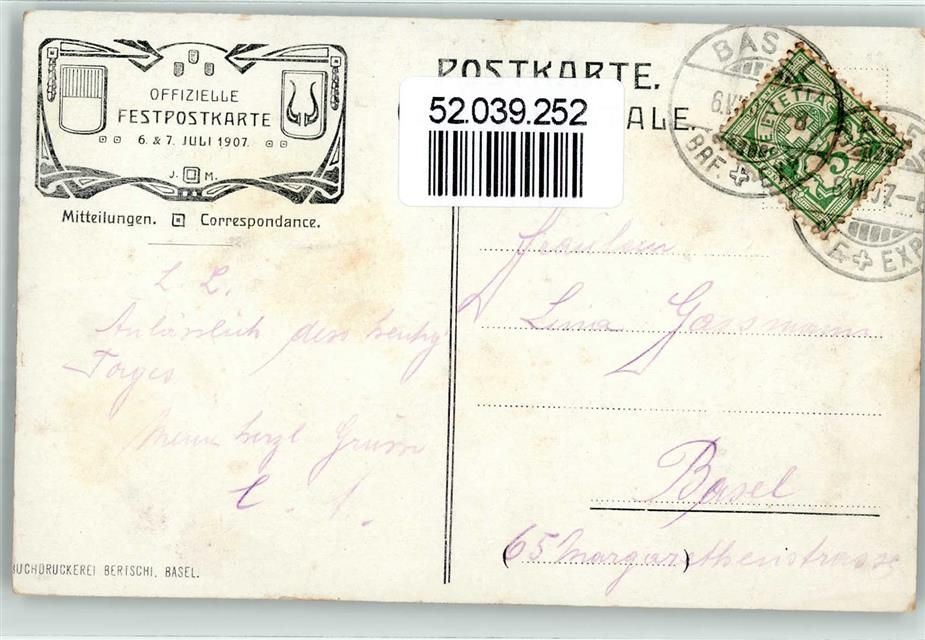 OFFIZIELLE
FESTPOSTKARTE
6. & 7. JULI 1907.
J. M.
Mitteilungen. Correspondance.
POSTKARTE.
ALE.
52.039.252
BAS
6.VII
BRF.
HELVETIA
5
VII.07.–8
EXP
L. L.
Anlässlich dess heutig
Tages
meine herzl Grüsse
L. A.
Fräulein
Lina Gassmann
Basel
(65 Margarethenstrasse)
BUCHDRUCKEREI BERTSCHI, BASEL.